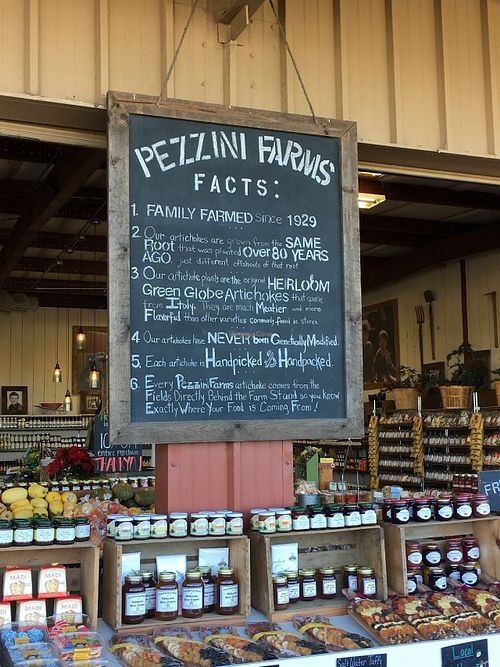 PEZZINI FARMS
FACTS:
1. FAMILY FARMED Since 1929
2. Our artichokes are grown from the SAME
Root that was planted Over 80 YEARS
AGO. just different offshoots of that root.
3 Our artichoke plants are the original HEIRLOOM
Green Globe Artichokes that came
from Italy. They are much Meatier and more
Flavorful than other varieties commonly found in stores
4 Our artichokes have NEVER been Genetically Modified.
5. Each artichoke is Handpicked & Handpacked.
6. Every Pezzini Farms artichoke comes from the
Fields Directly Behind the Farm Stand so you know
Exactly Where Your Food is Coming From!
entire purchase
THANK YOU!
FR
MADI
MADI
Salt Water Taffy
Local